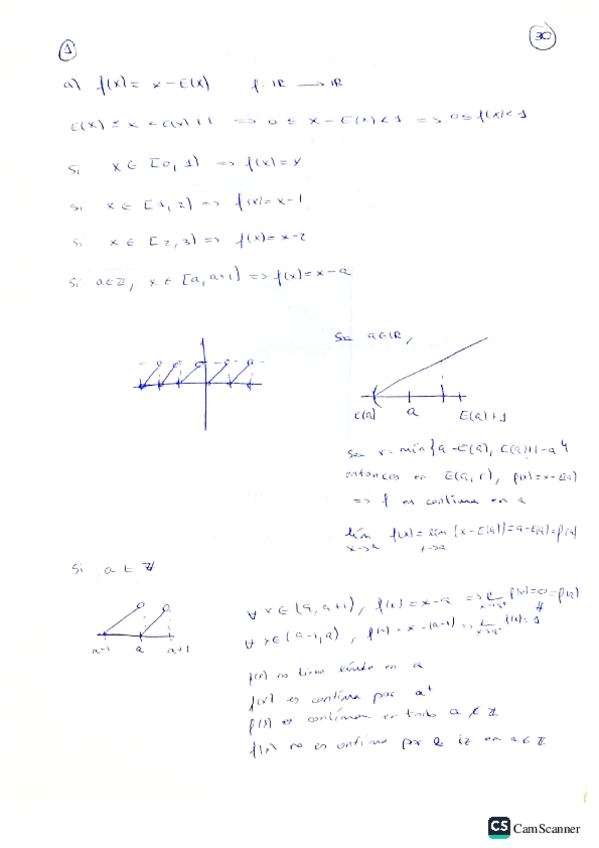 1
30
a) f(x) = x - E(x) f: ℝ → ℝ
E(x) ≤ x < E(x)+1 => 0 ≤ x - E(x) < 1 => 0 ≤ f(x) < 1
Si x ∈ [0, 1) => f(x) = x
Si x ∈ [1, 2) => f(x) = x-1
Si x ∈ [2, 3) => f(x) = x-2
Si a∈ℤ, x ∈ [a, a+1) => f(x) = x-a
Sea a∈ℝ,
E(a) a E(a)+1
Sea r = min{a-E(a), E(a)+1-a}
entonces en E(a, r), f(x) = x-E(a)
=> f es continua en a
lim x→a f(x) = lim x→a (x-E(a)) = a-E(a) = f(a)
Si a ∈ ℤ
a-1 a a+1
∀ x ∈ (a, a+1), f(x) = x-a => x→a⁺ f(x) = 0 = f(a)
∀ x ∈ (a-1, a), f(x) = x-(a-1) => x→a⁻ f(x) = 1
f(x) no tiene límite en a
f(x) es continua por a⁺
f(x) es continua en todo a ∉ ℤ
f(x) no es continua por la iz en a∈ℤ
CS CamScanner